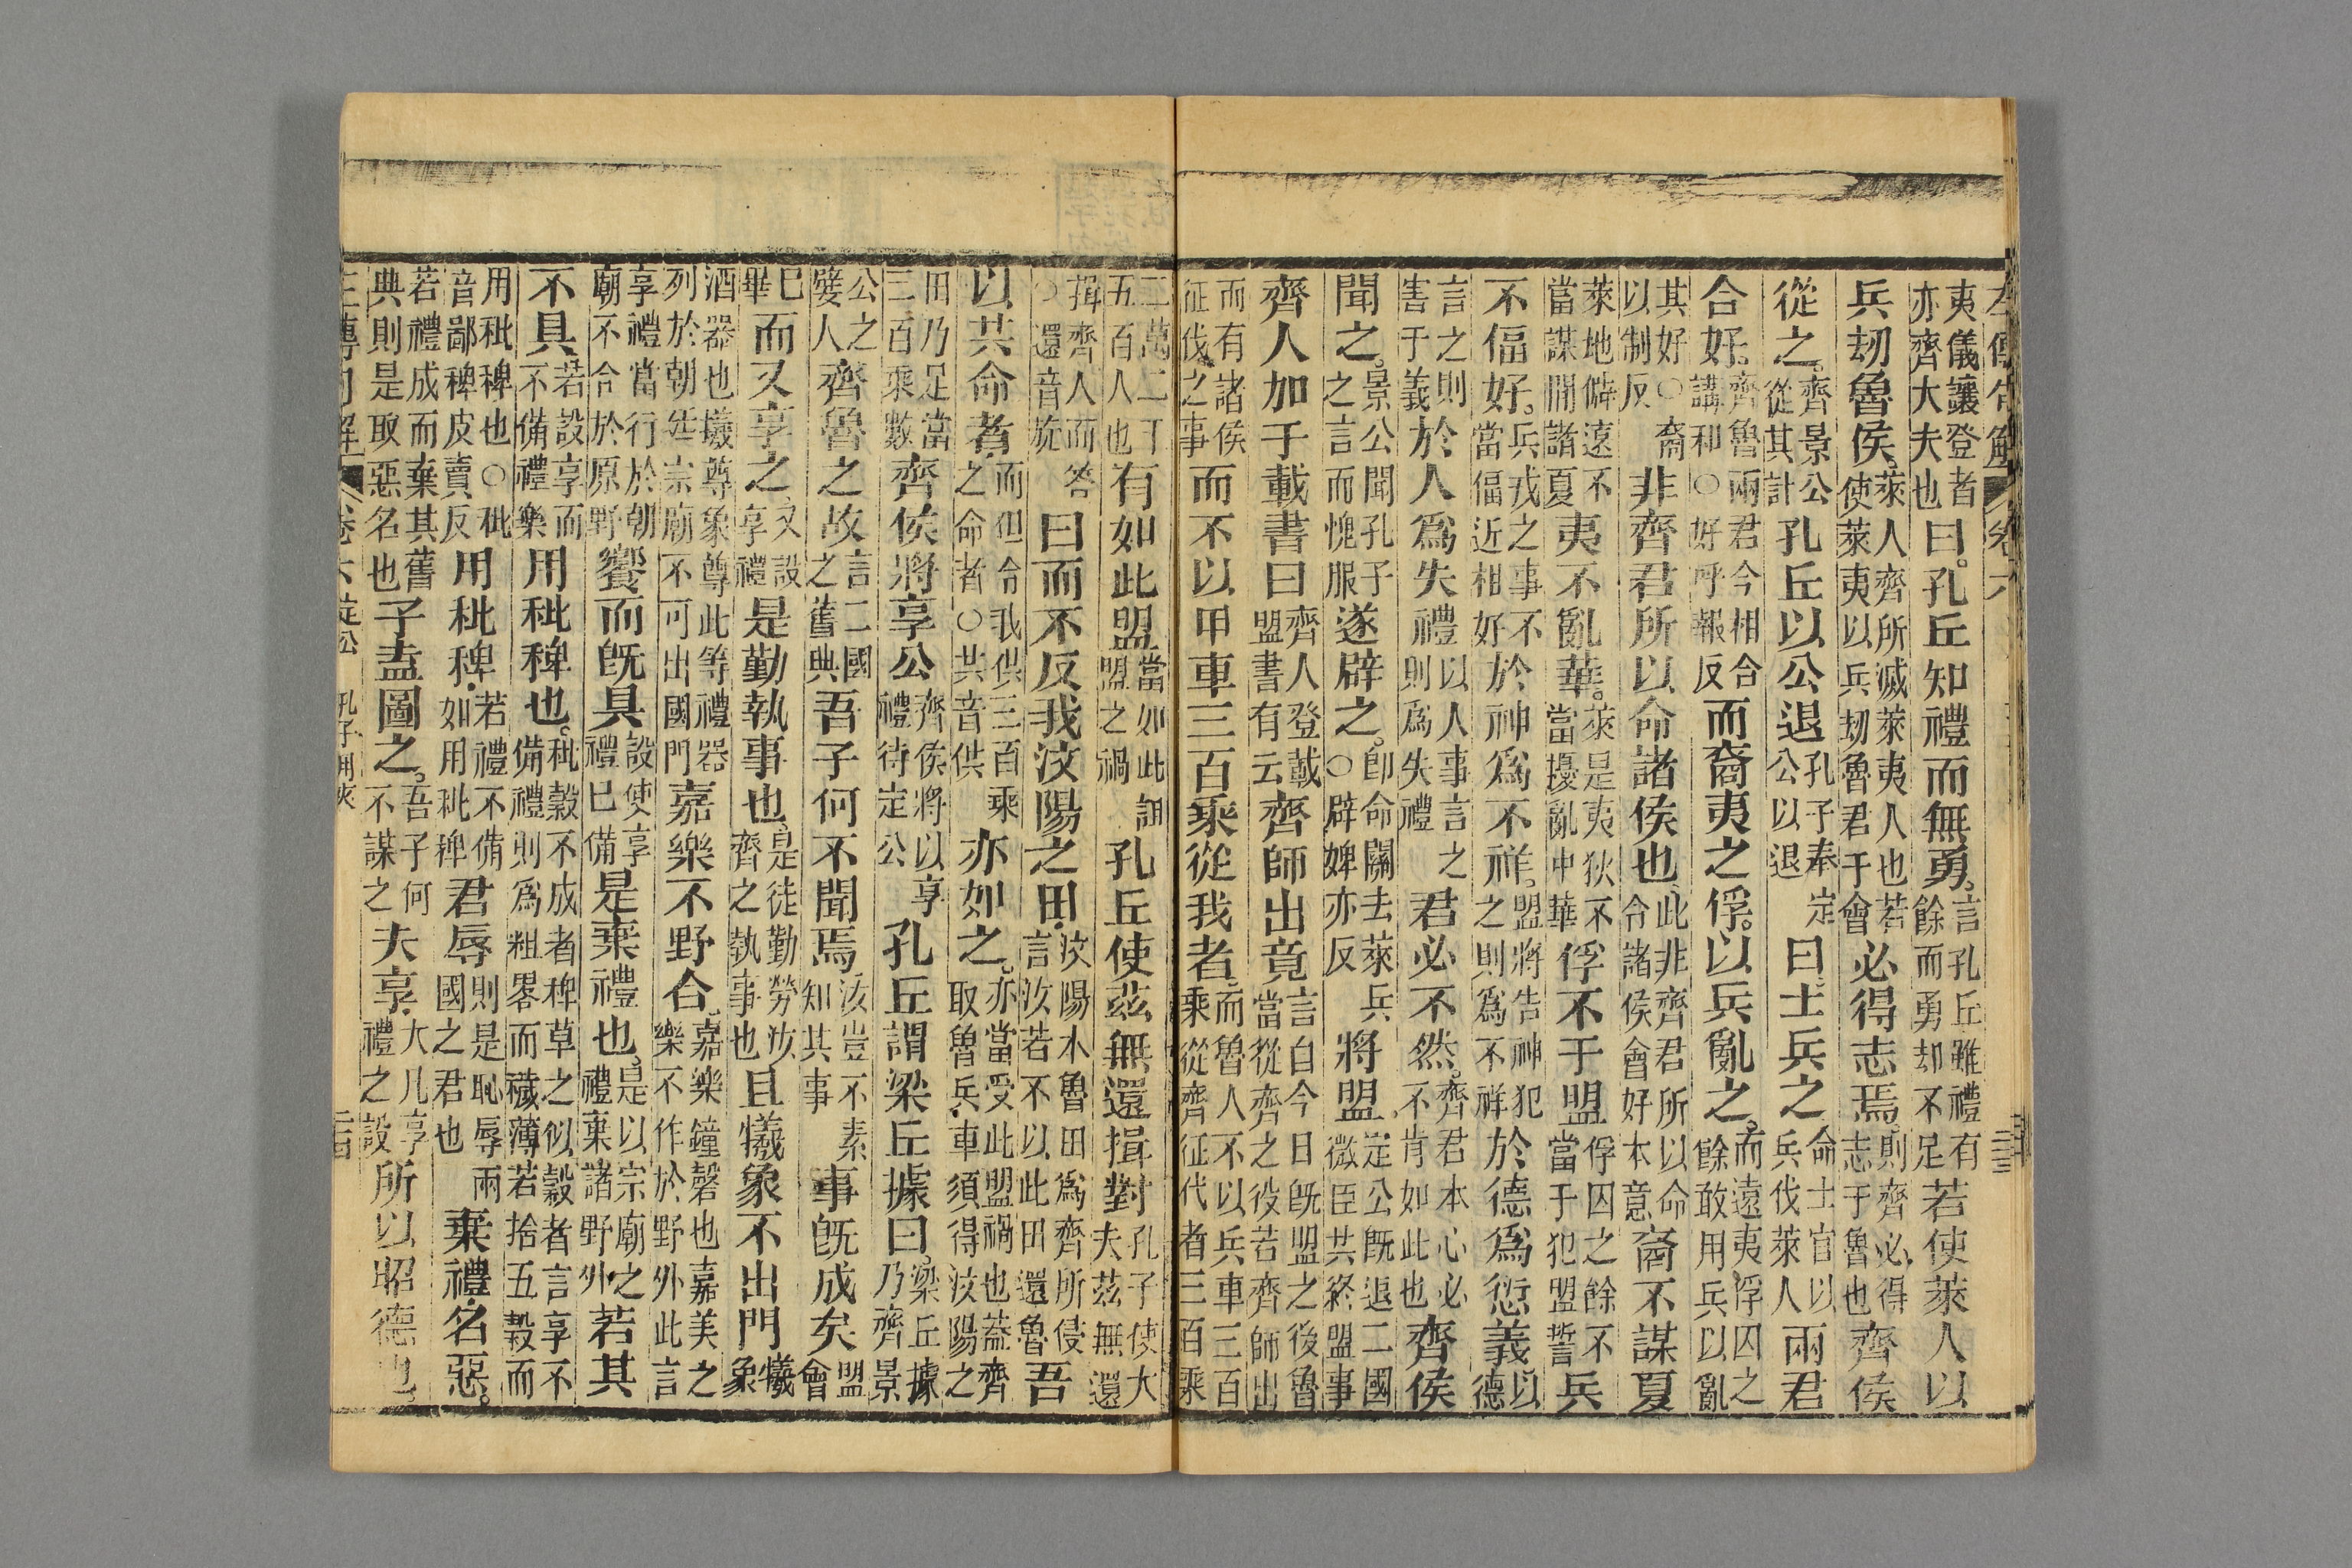 左傳句解 卷六
夷儀讓登者亦齊大夫也曰孔丘知禮而無勇言孔丘雖禮有餘而勇却不足若使萊人以
兵刼魯侯萊人齊所滅萊夷人也若使萊夷以兵刼魯君于會必得志焉則齊必得志于魯也齊侯
從之齊景公從其計孔丘以公退孔子奉定公以退曰士兵之命士官以兵伐萊人兩君
合好齊魯兩君今相合講和○好呼報反而裔夷之俘以兵亂之而遠夷俘囚之餘敢用兵以亂
其好○裔以制反非齊君所以命諸侯也此非齊君所以命令諸侯會好本意裔不謀夏
萊地僻遠不當謀間諸夏夷不亂華萊是夷狄不當擾亂中華俘不干盟俘囚之餘不當干犯盟誓兵
不偪好兵戎之事不當偪近相好於神爲不祥盟將告神犯之則爲不祥於德爲愆義以德
言之則害于義於人爲失禮以人事言之則爲失禮君必不然齊君本心必不肯如此也齊侯
聞之景公聞孔子之言而愧服遂辟之卽命闢去萊兵○辟婢亦反將盟定公既退二國微臣共終盟事
齊人加于載書曰齊人登載盟書有云齊師出竟言自今日旣盟之後魯當從齊之役若齊師出
而有諸侯征伐之事而不以甲車三百乘從我者而魯人不以兵車三百乘從齊征代者三百乘
二萬二千五百人也有如此盟當如此詛盟之禍孔丘使茲無還揖對孔子使大夫茲無還
揖齊人而答○還音旋曰而不反我汶陽之田汶陽水魯田爲齊所侵言汝若不以此田還魯吾
以共命者而但令我供三百乘之命者○共音供亦如之亦當受此盟禍也蓋齊取魯兵車須得汶陽之
田乃足當三百乘數齊侯將享公齊侯將以享禮待定公孔丘謂梁丘據曰梁丘據乃齊景
公之嬖人齊魯之故言二國之舊典吾子何不聞焉汝豈不素知其事事旣成矣盟會
已畢而又享之又設享禮是勤執事也是徒勤勞汝齊之執事也且犧象不出門犧象
酒器也犧尊象尊此等禮器列於朝廷宗廟不可出國門嘉樂不野合嘉樂鐘磬也嘉美之樂不作於野外此言
享禮當行於朝廟不合於原野饗而旣具設使享禮已備是棄禮也是以宗廟之禮棄諸野外若其
不具若設享而不備禮樂用秕稗也秕穀不成者稗草之似穀者言享不備禮則爲粗畧而穢薄若捨五穀而
用秕稗也○秕音鄙稗皮賣反用秕稗若禮不備如用秕稗君辱則是恥辱兩國之君也棄禮名惡
若禮成而棄其舊典則是取惡名也子盍圖之吾子何不謀之夫享大凡享禮之設所以昭德也
左傳句解 卷六 定公 孔子相夾 二四